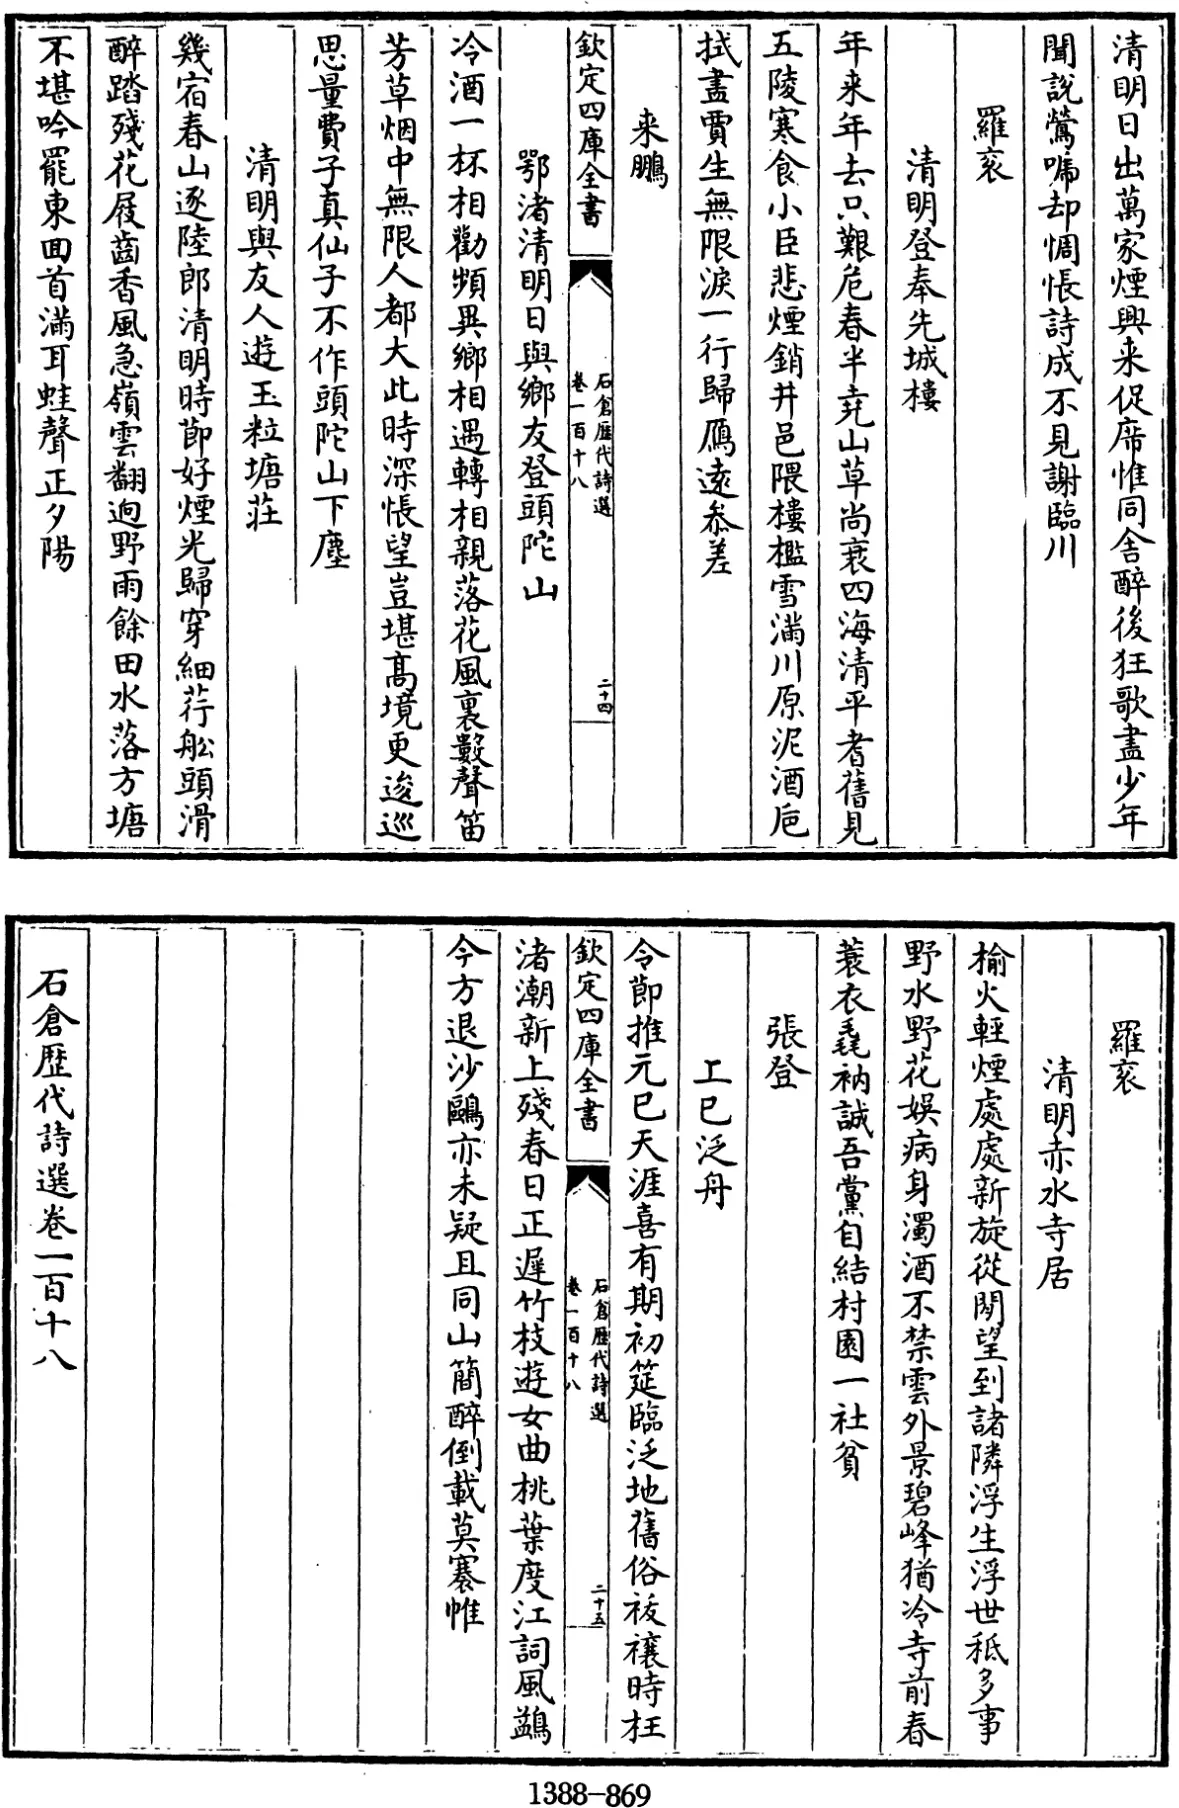 清明日出萬家煙興来促席惟同舍醉後狂歌盡少年
聞說鶯啼却惆悵詩成不見謝臨川
羅衮
清明登奉先城樓
年来年去只艱危春半堯山草尚衰四海清平耆舊見
五陵寒食小臣悲煙銷井邑隈樓檻雪滿川原泥酒巵
拭盡賈生無限淚一行歸鴈遠叅差
来鵬
欽定四庫全書
石倉歴代詩選
卷一百十八
二十四
鄂渚清明日與鄉友登頭陀山
冷酒一杯相勸頻異鄉相遇轉相親落花風裏數聲笛
芳草烟中無限人都大此時深悵望豈堪高境更逡巡
思量費子真仙子不作頭陀山下塵
清明與友人遊玉粒塘莊
幾宿春山逐陸郎清明時節好煙光歸穿細荇舩頭滑
醉踏殘花屐齒香風急嶺雲翻逈野雨餘田水落方塘
不堪吟罷東囬首滿耳蛙聲正夕陽
羅衮
清明赤水寺居
榆火輕煙處處新旋從閒望到諸隣浮生浮世秪多事
野水野花娛病身濁酒不禁雲外景碧峰猶冷寺前春
蓑衣毳衲誠吾黨自結村園一社貧
張登
上巳泛舟
令節推元巳天涯喜有期初筵臨泛地舊俗祓禳時枉
欽定四庫全書
石倉歴代詩選
卷一百十八
二十五
渚潮新上殘春日正遲竹枝遊女曲桃葉度江詞風鷁
今方退沙鷗亦未疑且同山簡醉倒載莫褰帷
石倉歴代詩選卷一百十八
1388-869